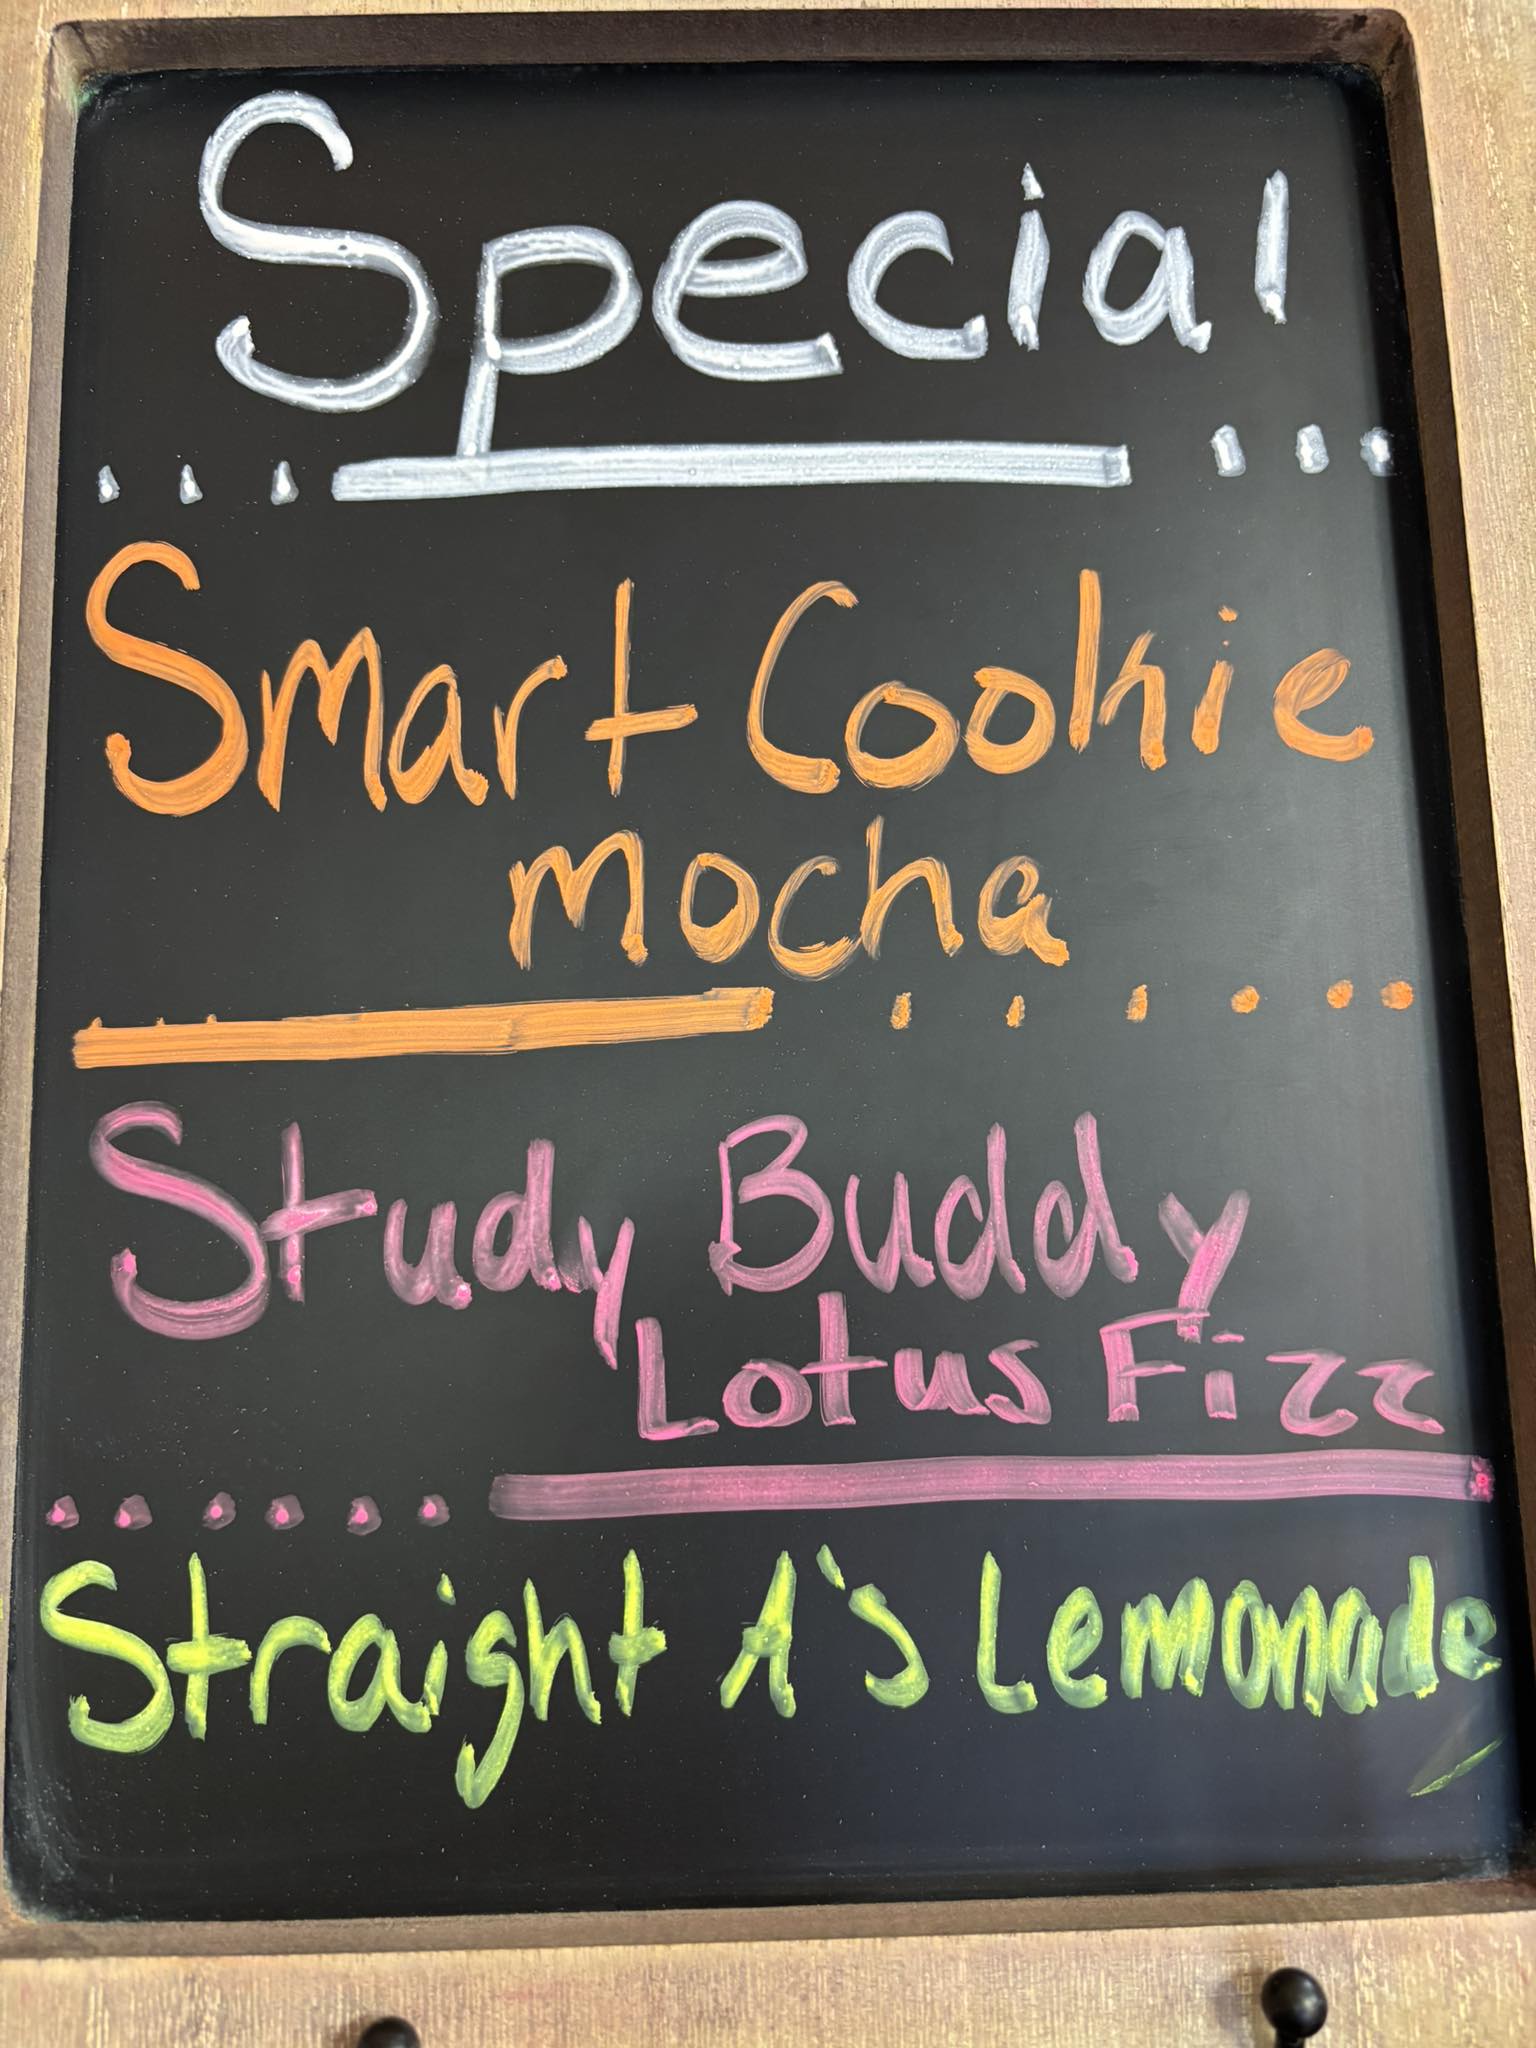 Special
Smart Cookie
Mocha
Study Buddy
Lotus Fizz
Straight A's Lemonade